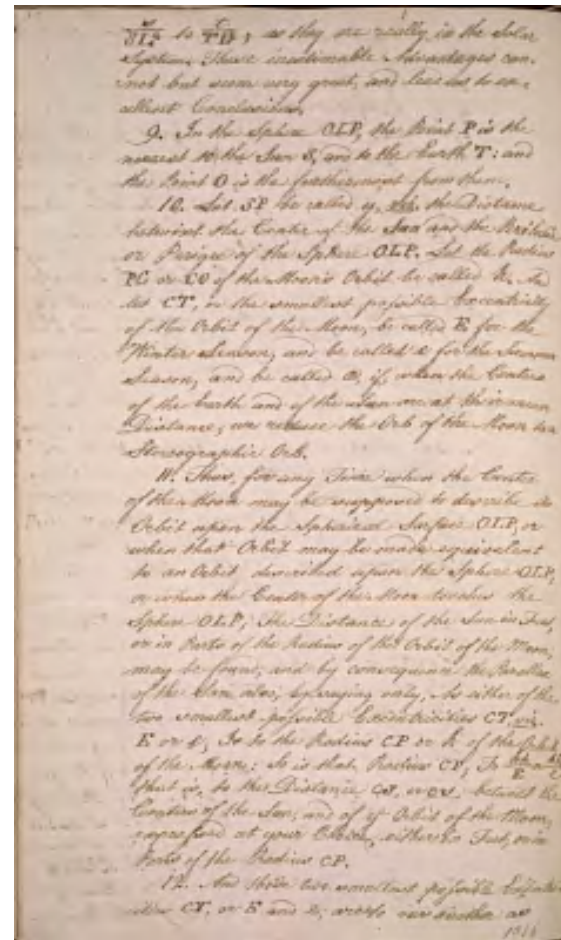 to ; as they are really in the Solar
System. These inestimable Advantages can-
not but seem very great, and lead us to ex-
cellent Conclusions.
9. In the Sphere OLP, the Point P is the
nearest to the Sun S, and to the Earth T: and
the Point O is the farthermost from them.
10. Let SP be called y, viz. the Distance
between the Center of the Sun and the
or Perigee of the Sphere OLP. Let the Radius
PC or CO of the Moon's Orbit be called R. And
let CT, or the smallest possible Excentricity
of the Orbit of the Moon, be called E for the
Winter Season, and be called e for the Summer
Season, and be called if, when the Centers
of the Earth and of the Sun are at their mean
Distance, we reduce the Orb of the Moon to a
Stereographic Orb.
11. Thus, for any Time when the Center
of the Moon may be supposed to describe its
Orbit upon the Spherical Surface OLP, or
when that Orbit may be made equivalent
to an Orbit described upon the Sphere OLP,
or when the Center of the Moon touches the
Sphere OLP; The Distance of the Sun in Feet,
or in Parts of the Radius of the Orbit of the Moon,
may be found, and by consequence the Parallax
of the Sun also, by saying only, As either of the
two smallest possible Excentricities CT, viz.
E or e, Is to the Radius CP or R of the Orbit
of the Moon: So is that Radius CP, To
that is, to the Distance CS, or cs, between the
Centers of the Sun, and of ye Orbit of the Moon,
expressed at your Choice, either in Feet, or in
Parts of the Radius CP.
12. And these two smallest possible
CT, or E and e, are to one another as